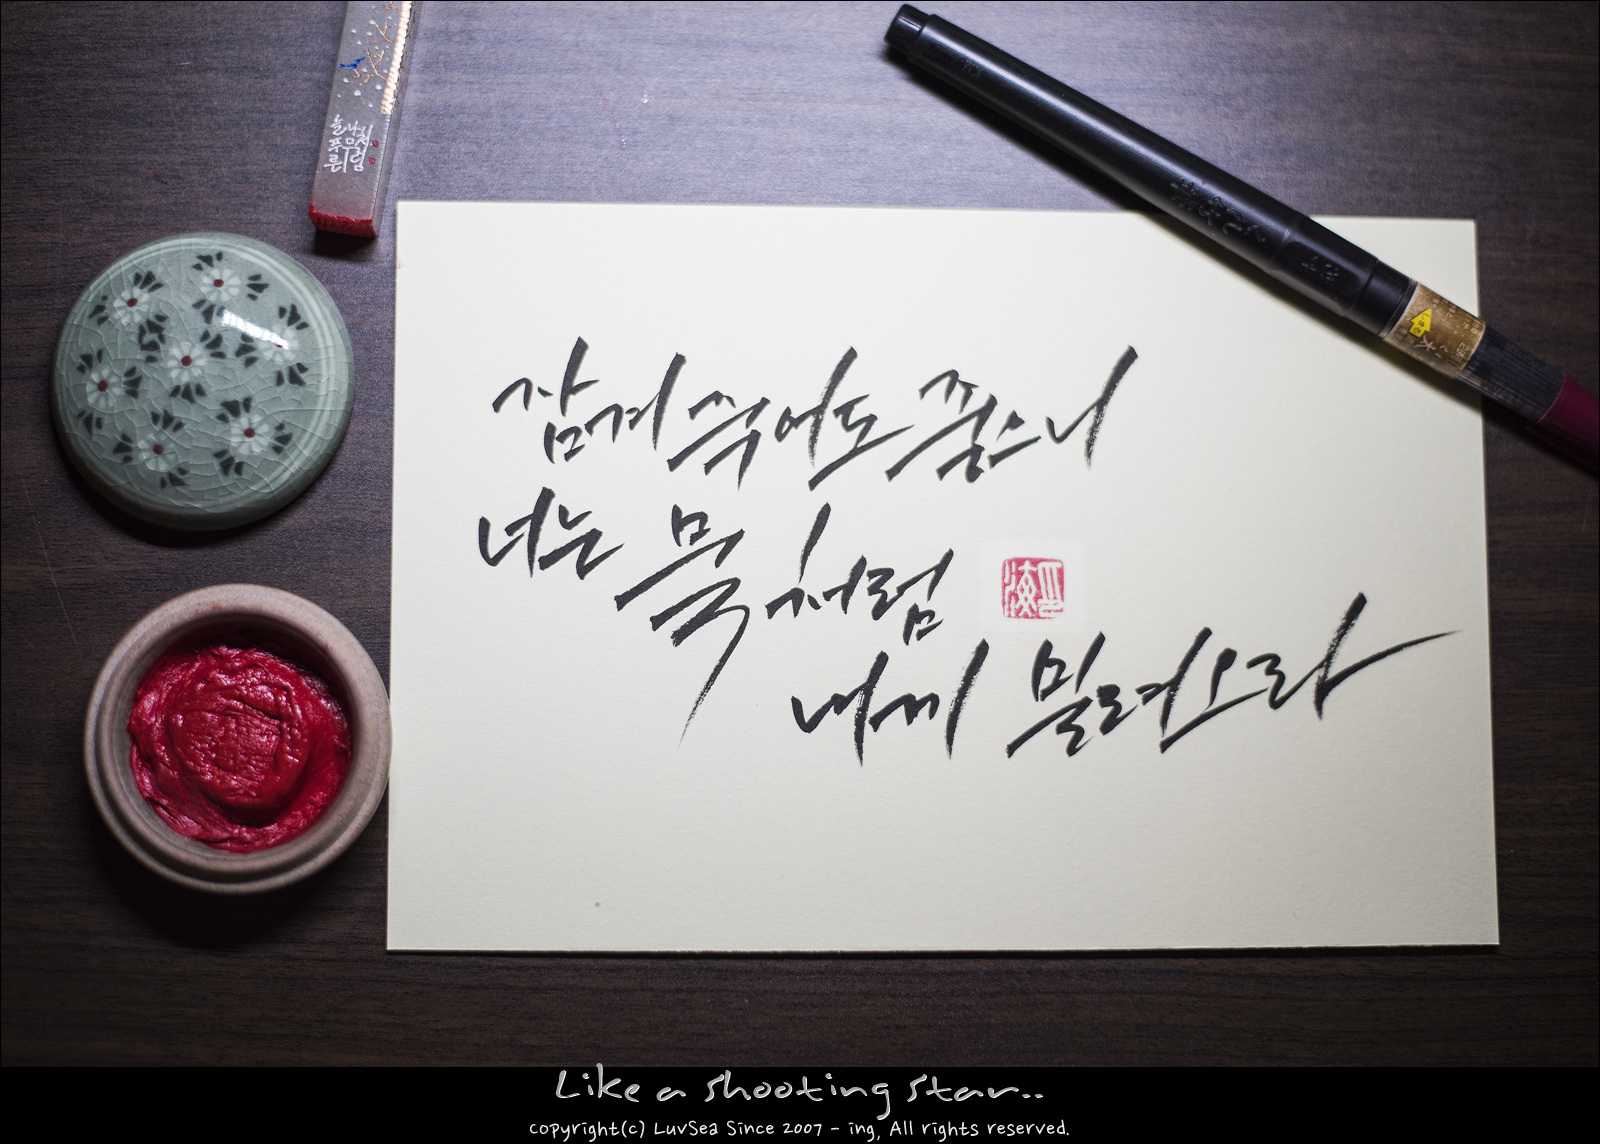 늘푸른
나무
처럼
잠겨 죽어도 좋으니
너는 물처럼
내게 밀려오라
Like a shooting star..
copyright(c) LuvSea Since 2007 - ing, All rights reserved.